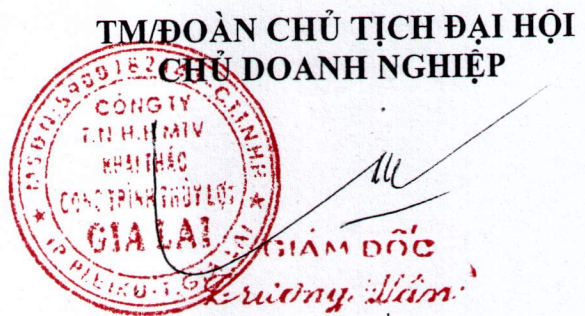 TM/ĐOÀN CHỦ TỊCH ĐẠI HỘI
CHỦ DOANH NGHIỆP
CÔNG TY
T.N.H.H MTV
KHAI THÁC
CÔNG TRÌNH THỦY LỢI
GIA LAI
TP PLEIKU-T.GIA LAI
GIÁM ĐỐC
Trương Vân